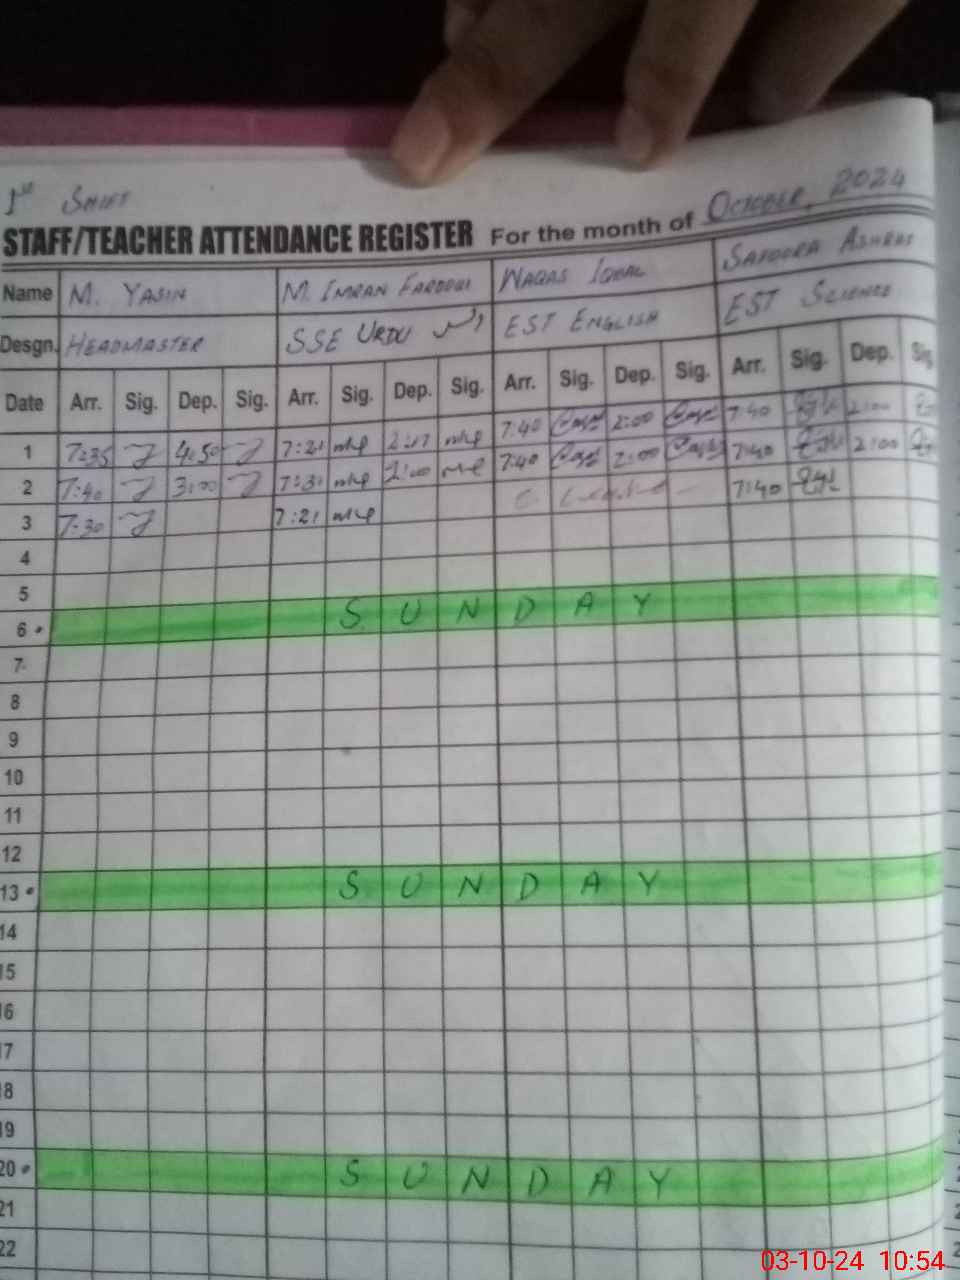 1st SHIFT
STAFF/TEACHER ATTENDANCE REGISTER For the month of OCTOBER, 2024
Name M. YASIN M. IMRAN FAROOQI WAQAS IQBAL SAFOORA ASHRAF
Desgn. HEADMASTER SSE URDU EST ENGLISH EST SCIENCE
Date Arr. Sig. Dep. Sig. Arr. Sig. Dep. Sig. Arr. Sig. Dep. Sig. Arr. Sig. Dep. Sig
1 7:35 4:50 7:21 2:17 7:40 2:00 7:40 2:00
2 7:40 3:00 7:31 2:00 7:40 2:00 7:40 2:00
3 7:30 7:21 7:40
4
5
6 SUNDAY
7
8
9
10
11
12
13 SUNDAY
14
15
16
17
18
19
20 SUNDAY
21
22
03-10-24 10:54